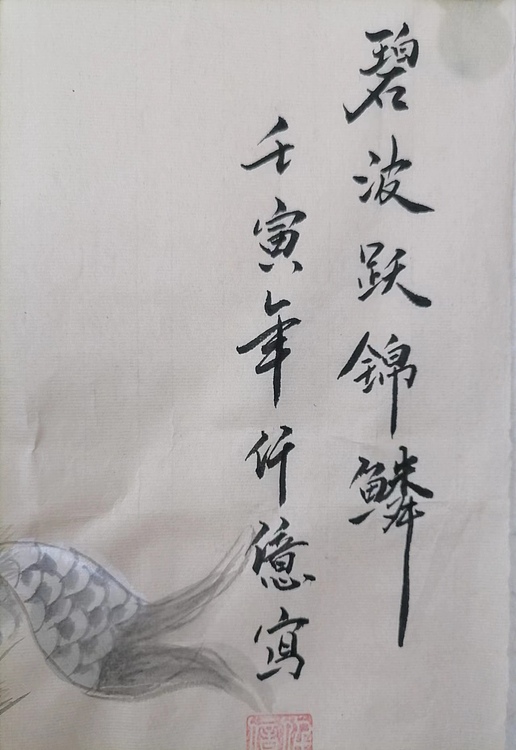 碧波跃錦鳞
壬寅年仟億寫